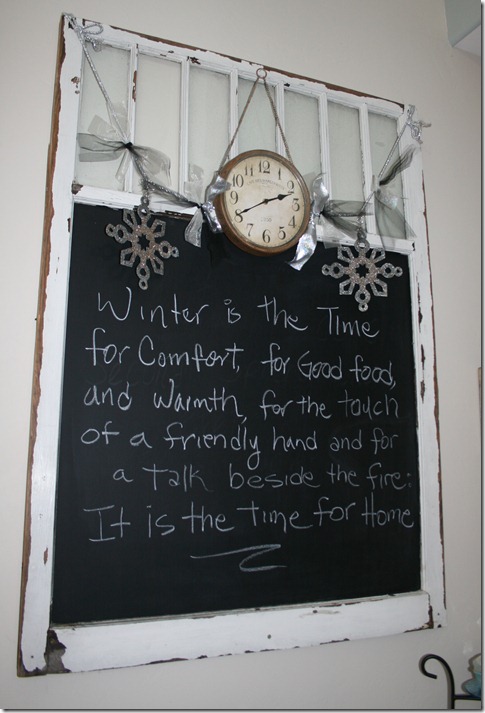 12
1
2
3
4
5
6
7
8
9
10
11
Winter is the Time
for Comfort, for Good food,
and Warmth, for the touch
of a friendly hand and for
a Talk beside the fire:
It is the Time for Home